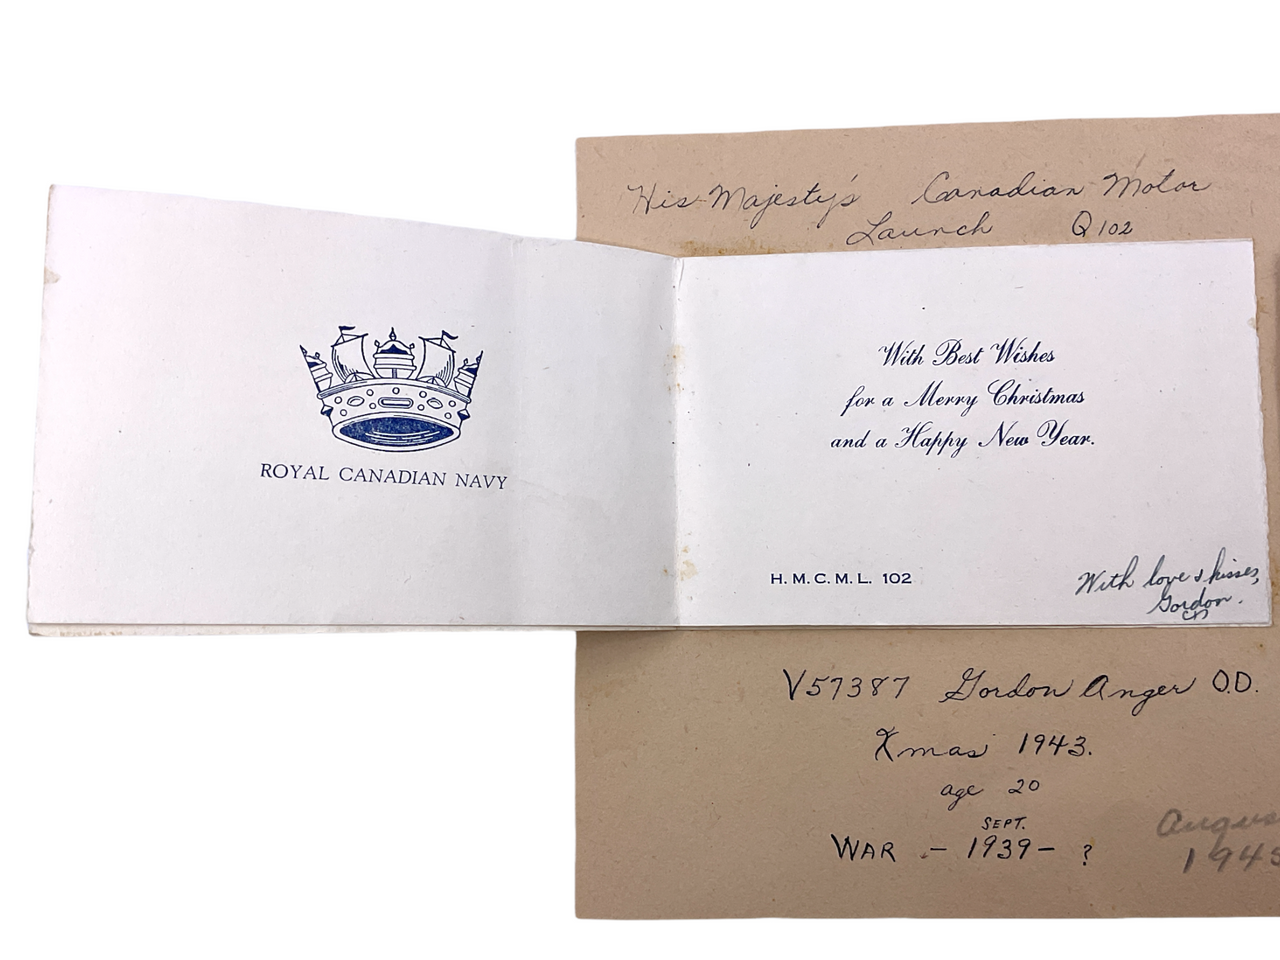 His Majesty's Canadian Motor
Launch Q102
ROYAL CANADIAN NAVY
With Best Wishes
for a Merry Christmas
and a Happy New Year.
H. M. C. M. L. 102
With love & kisses,
Gordon.
V57387 Gordon Anger O.D.
Xmas 1943.
age 20
SEPT.
WAR - 1939 - ?
Augus
1945